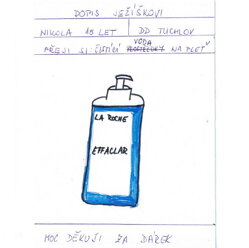 DOPIS JEŽÍŠKOVI
NIKOLA 15 LET DD TUCHLOV
PŘEJI SI ČISTÍCÍ VODA NA PLEŤ
LA ROCHE
EFFACLAR
MOC DĚKUJI ZA DÁREK